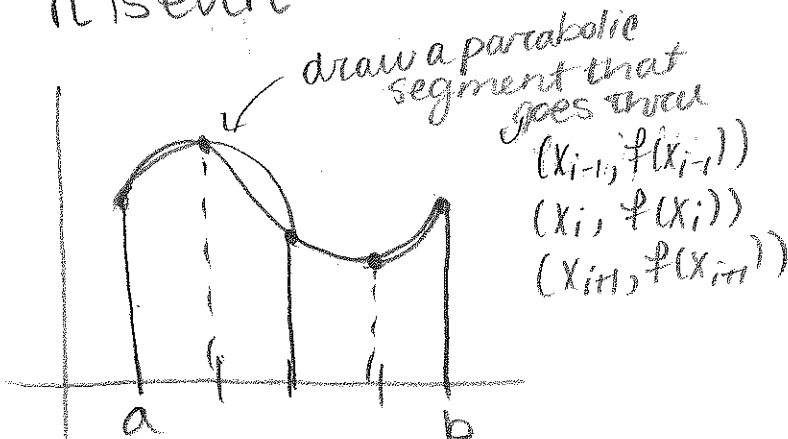 it is even
draw a parabolic
segment that
goes thru
(x_{i-1}, f(x_{i-1}))
(x_i, f(x_i))
(x_{i+1}, f(x_{i+1}))
a
b